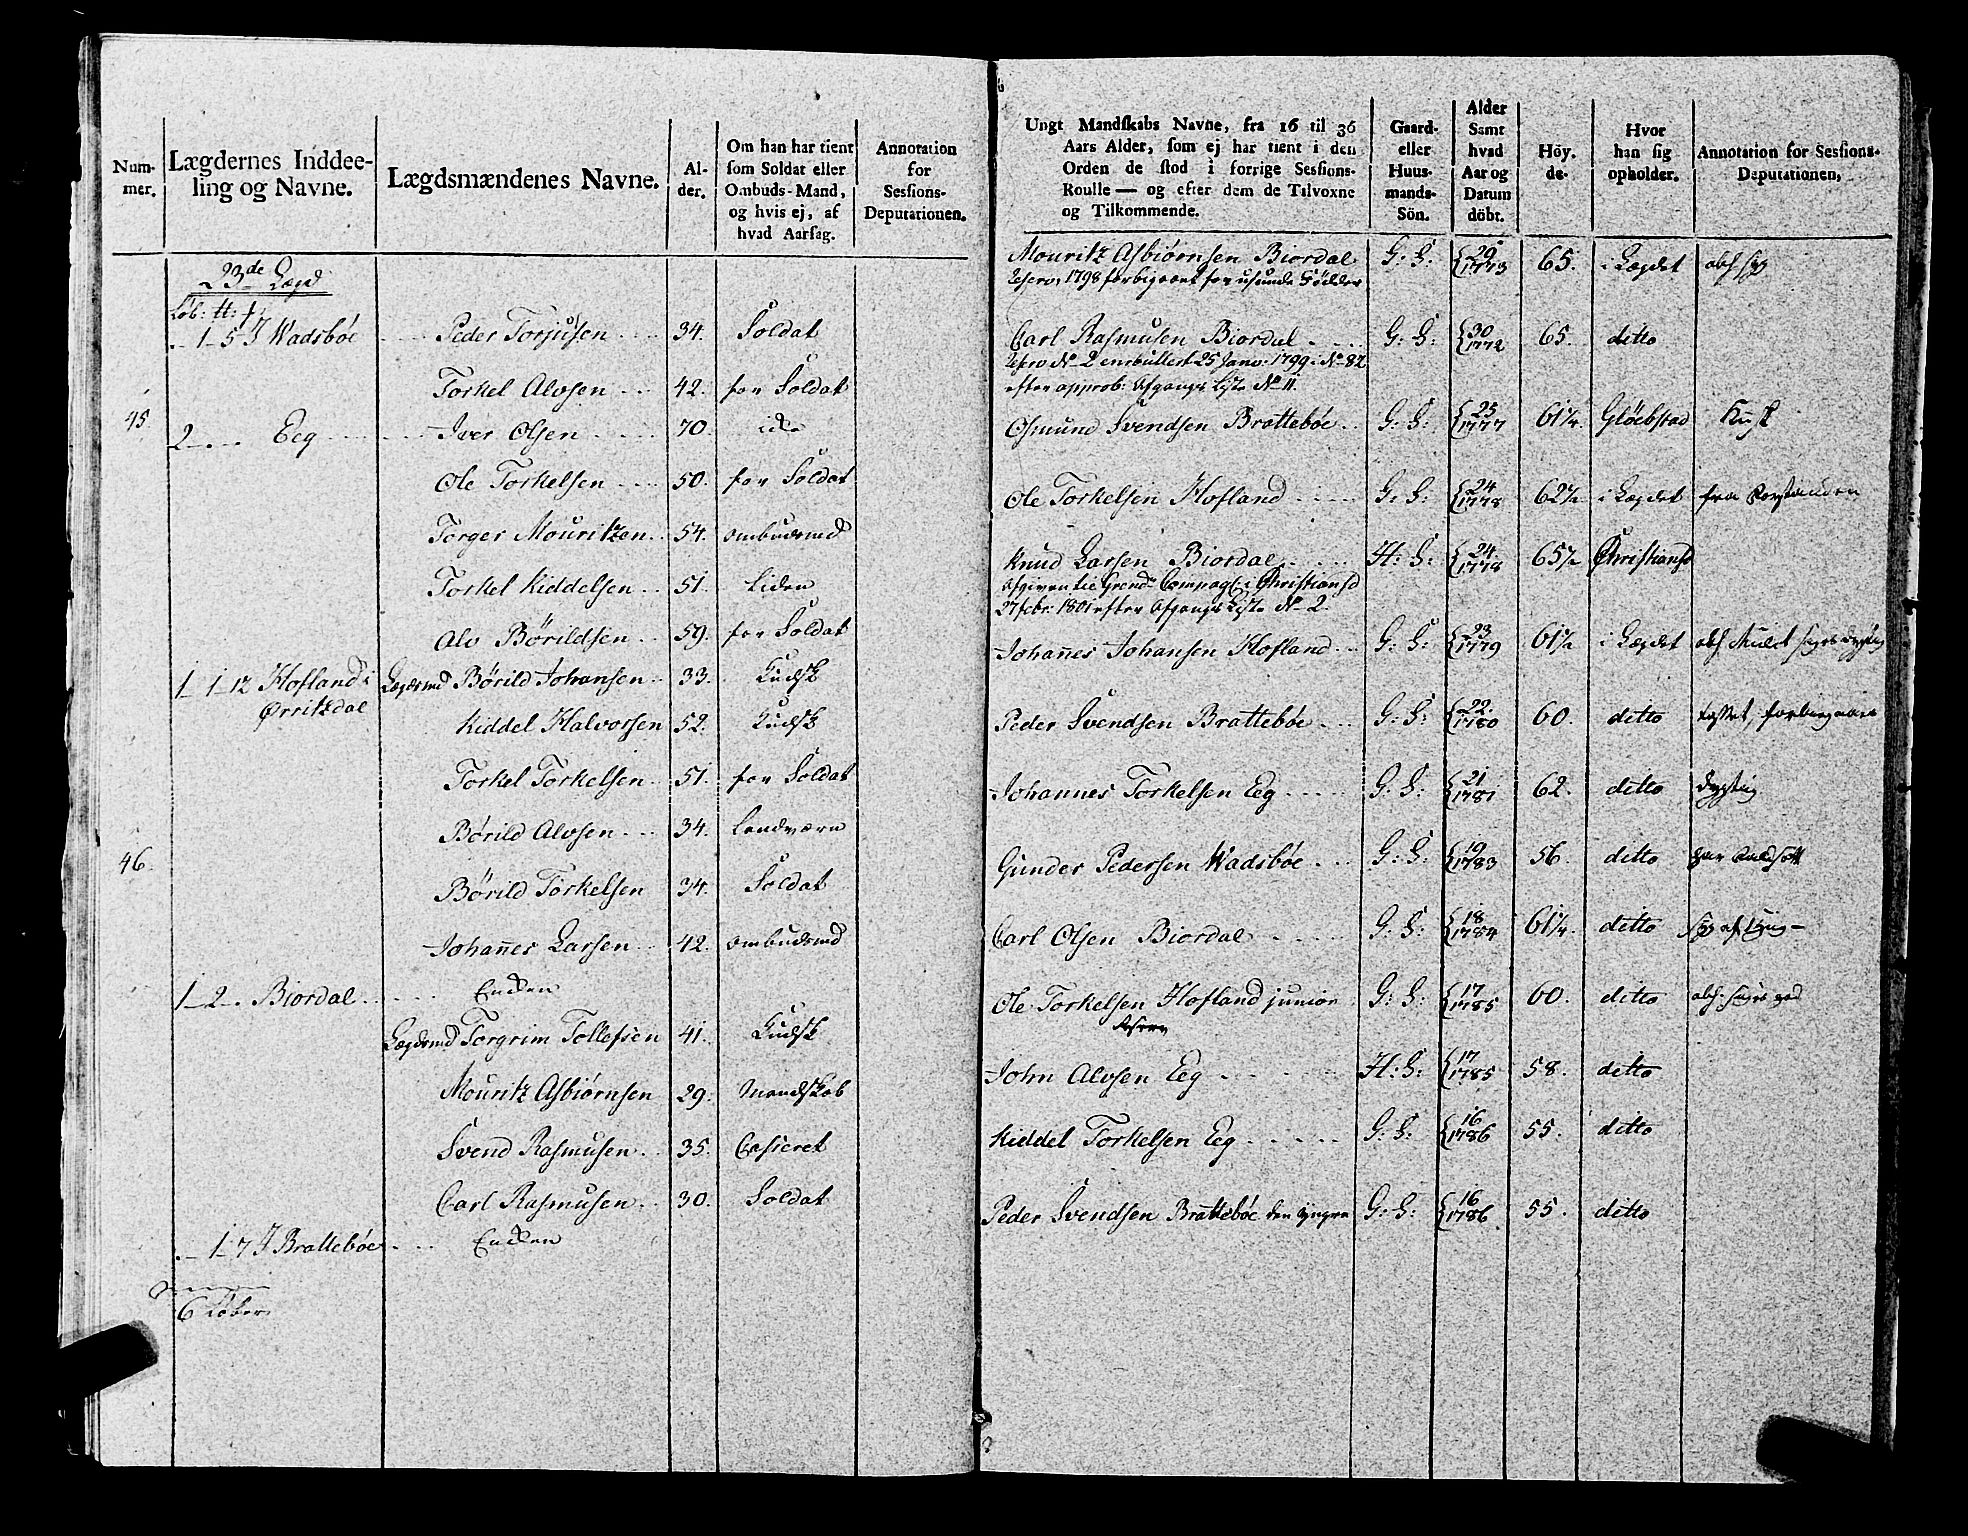 Num-
mer.
Lægdernes Inddee-
ling og Navne.
Lægdsmændenes Navne.
Al-
der.
Om han har tient
som Soldat eller
Ombuds-Mand,
og hvis ej, af
hvad Aarsag.
Annotation
for
Sessions-
Deputationen.
23de Lægd
Løb: tt:
. 1 5 I Wadsbøe Peder Torjusen 34. Soldat
Torkel Alvsen 42. for Soldat
45
2 . Eeg Iver Olsen 70. icke
Ole Torkelsen 50. for Soldat
Torger Mouritzen 54. ombudsmd
Torkel Kiddelsen 51. Liden
Alv Börildsen 59. for Soldat
1 1 12 Hofland i Lægdsmd Börild Johansen 33. Kudsk
Ørritzdal
Kiddel Halvorsen 52. Kudsk
Torkel Torkelsen 51. for Soldat
Börild Alvsen 34. Landværn
46.
Börild Torkelsen 34. Soldat
Johannes Larsen 42. ombudsmd
1 2 . Biordal Encken
Lægdsmd Torgrim Tollefsen 41. Kudsk
Mouritz Asbiørnsen 29. Mandskab
Svend Rasmusen 35. Casseret
Carl Rasmusen 30. Soldat
. 1 7 I Brattebøe Encken
6 Løber
Ungt Mandskabs Navne, fra 16 til 36
Aars Alder, som ej har tient i den
Orden de stod i forrige Sessions-
Roulle — og efter dem de Tilvoxne
og Tilkommende.
Gaard-
eller
Huus-
mands-
Sön.
Alder
Samt
hvad
Aar og
Datum
döbt.
Höy-
de.
Hvor
han sig
opholder.
Annotation for Sessions-
Deputationen,
Mouritz Asbiørnsen Biordal G: S: 29 1773 65. i Lægdet
Reserv, 1798 forbigaaet for usunde Födder
Carl Rasmusen Biordal G: S: 30 1772 65. ditto
Resrv No 2 enrullert 25 Janv. 1799. No 82
efter approb: Afgangs Liste No 11
Osmund Svendsen Brattebøe G: S: 25 1777 61¼ Glöebstad Kusk
Ole Torkelsen Hofland G: S: 24 1778 62½ i Lægdet
Knud Larsen Biordal H: S: 24 1778 65½ Christiansd
afgiven til Grend. Compag: i Christiansd
27 febr: 1801 efter Afgangs Liste No 2.
Johannes Johansen Hofland G: S: 23 1779 61½ i Lægdet
Peder Svendsen Brattebøe G: S: 22 1780 60. ditto
Johannes Torkelsen Eeg G: S: 21 1781 62. ditto dygtig
Gunder Pedersen Wadsbøe G: S: 19 1783 56. ditto
Carl Olsen Biordal G: S: 18 1784 61¼. ditto
Ole Torkelsen Hofland junior G: S: 17 1785 60. ditto
Reserv
John Alvsen Eeg H: S: 17 1785 58. ditto
Kiddel Torkelsen Eeg G: S: 16 1786 55. ditto
Peder Svendsen Brattebøe den yngre G: S: 16 1786 55. ditto